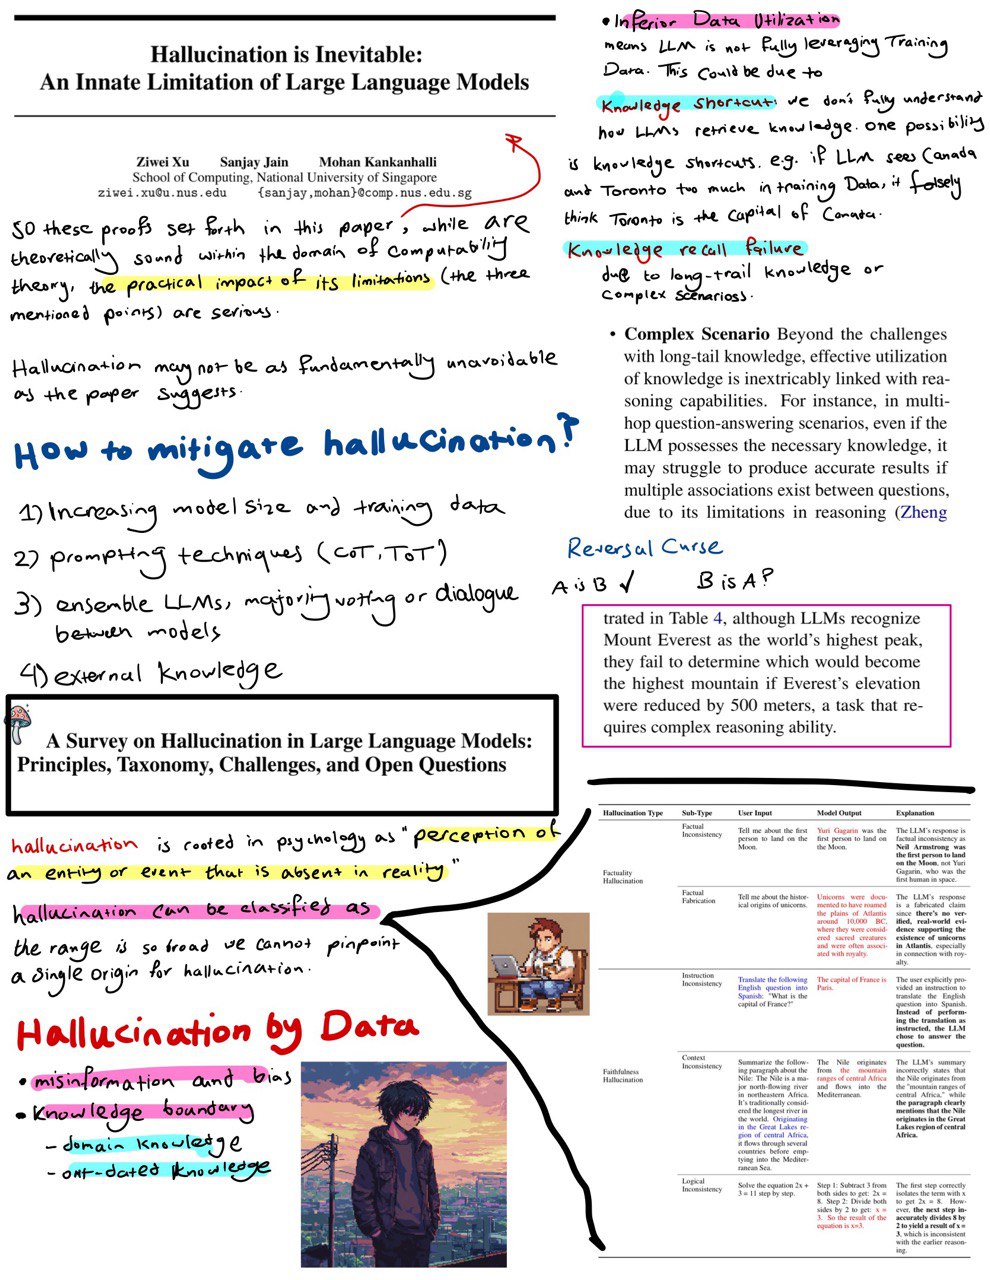 Hallucination is Inevitable:
An Innate Limitation of Large Language Models
Ziwei Xu Sanjay Jain Mohan Kankanhalli
School of Computing, National University of Singapore
ziwei.xu@u.nus.edu {sanjay,mohan}@comp.nus.edu.sg
So these proofs set forth in this paper, while are
theoretically sound within the domain of computability
theory, the practical impact of its limitations (the three
mentioned points) are serious.
Hallucination may not be as fundamentally unavoidable
as the paper suggests.
How to mitigate hallucination?
1) Increasing model size and training data
2) prompting techniques (CoT, ToT)
3) ensemble LLMs, majority voting or dialogue
between models
4) external knowledge
A Survey on Hallucination in Large Language Models:
Principles, Taxonomy, Challenges, and Open Questions
hallucination is rooted in psychology as "perception of
an entity or event that is absent in reality"
hallucination can be classified as
the range is so broad we cannot pinpoint
a single origin for hallucination.
Hallucination by Data
• misinformation and bias
• Knowledge boundary
- domain knowledge
- out-dated knowledge
• Inferior Data Utilization
means LLM is not fully leveraging Training
Data. This could be due to
Knowledge shortcut: we don't fully understand
how LLMs retrieve knowledge. one possibility
is knowledge shortcuts. e.g. if LLM sees Canada
and Toronto too much in training Data, it falsely
think Toronto is the capital of Canada.
Knowledge recall failure
due to long-trail knowledge or
complex scenarioss.
• Complex Scenario Beyond the challenges
with long-tail knowledge, effective utilization
of knowledge is inextricably linked with rea-
soning capabilities. For instance, in multi-
hop question-answering scenarios, even if the
LLM possesses the necessary knowledge, it
may struggle to produce accurate results if
multiple associations exist between questions,
due to its limitations in reasoning (Zheng
Reversal Curse
A is B ✓ B is A?
trated in Table 4, although LLMs recognize
Mount Everest as the world's highest peak,
they fail to determine which would become
the highest mountain if Everest's elevation
were reduced by 500 meters, a task that re-
quires complex reasoning ability.
Hallucination Type Sub-Type User Input Model Output Explanation
Factuality
Hallucination
Factual
Inconsistency
Tell me about the first
person to land on the
Moon.
Yuri Gagarin was the
first person to land on
the Moon.
The LLM's response is
factual inconsistency as
Neil Armstrong was
the first person to land
on the Moon, not Yuri
Gagarin, who was the
first human in space.
Factual
Fabrication
Tell me about the histor-
ical origins of unicorns.
Unicorns were docu-
mented to have roamed
the plains of Atlantis
around 10,000 BC,
where they were consid-
ered sacred creatures
and were often associ-
ated with royalty.
The LLM's response
is a fabricated claim
since there's no ver-
ified, real-world evi-
dence supporting the
existence of unicorns
in Atlantis, especially
in connection with roy-
alty.
Faithfulness
Hallucination
Instruction
Inconsistency
Translate the following
English question into
Spanish: "What is the
capital of France?"
The capital of France is
Paris.
The user explicitly pro-
vided an instruction to
translate the English
question into Spanish.
Instead of perform-
ing the translation as
instructed, the LLM
chose to answer the
question.
Context
Inconsistency
Summarize the follow-
ing paragraph about the
Nile: The Nile is a ma-
jor north-flowing river
in northeastern Africa.
It's traditionally consid-
ered the longest river in
the world. Originating
in the Great Lakes re-
gion of central Africa,
it flows through several
countries before emp-
tying into the Mediter-
ranean Sea.
The Nile originates
from the mountain
ranges of central Africa
and flows into the
Mediterranean.
The LLM's summary
incorrectly states that
the Nile originates from
the "mountain ranges of
central Africa," while
the paragraph clearly
mentions that the Nile
originates in the Great
Lakes region of central
Africa.
Logical
Inconsistency
Solve the equation 2x +
3 = 11 step by step.
Step 1: Subtract 3 from
both sides to get: 2x =
8. Step 2: Divide both
sides by 2 to get: x =
3. So the result of the
equation is x=3.
The first step correctly
isolates the term with x
to get 2x = 8. How-
ever, the next step in-
accurately divides 8 by
2 to yield a result of x =
3, which is inconsistent
with the earlier reason-
ing.